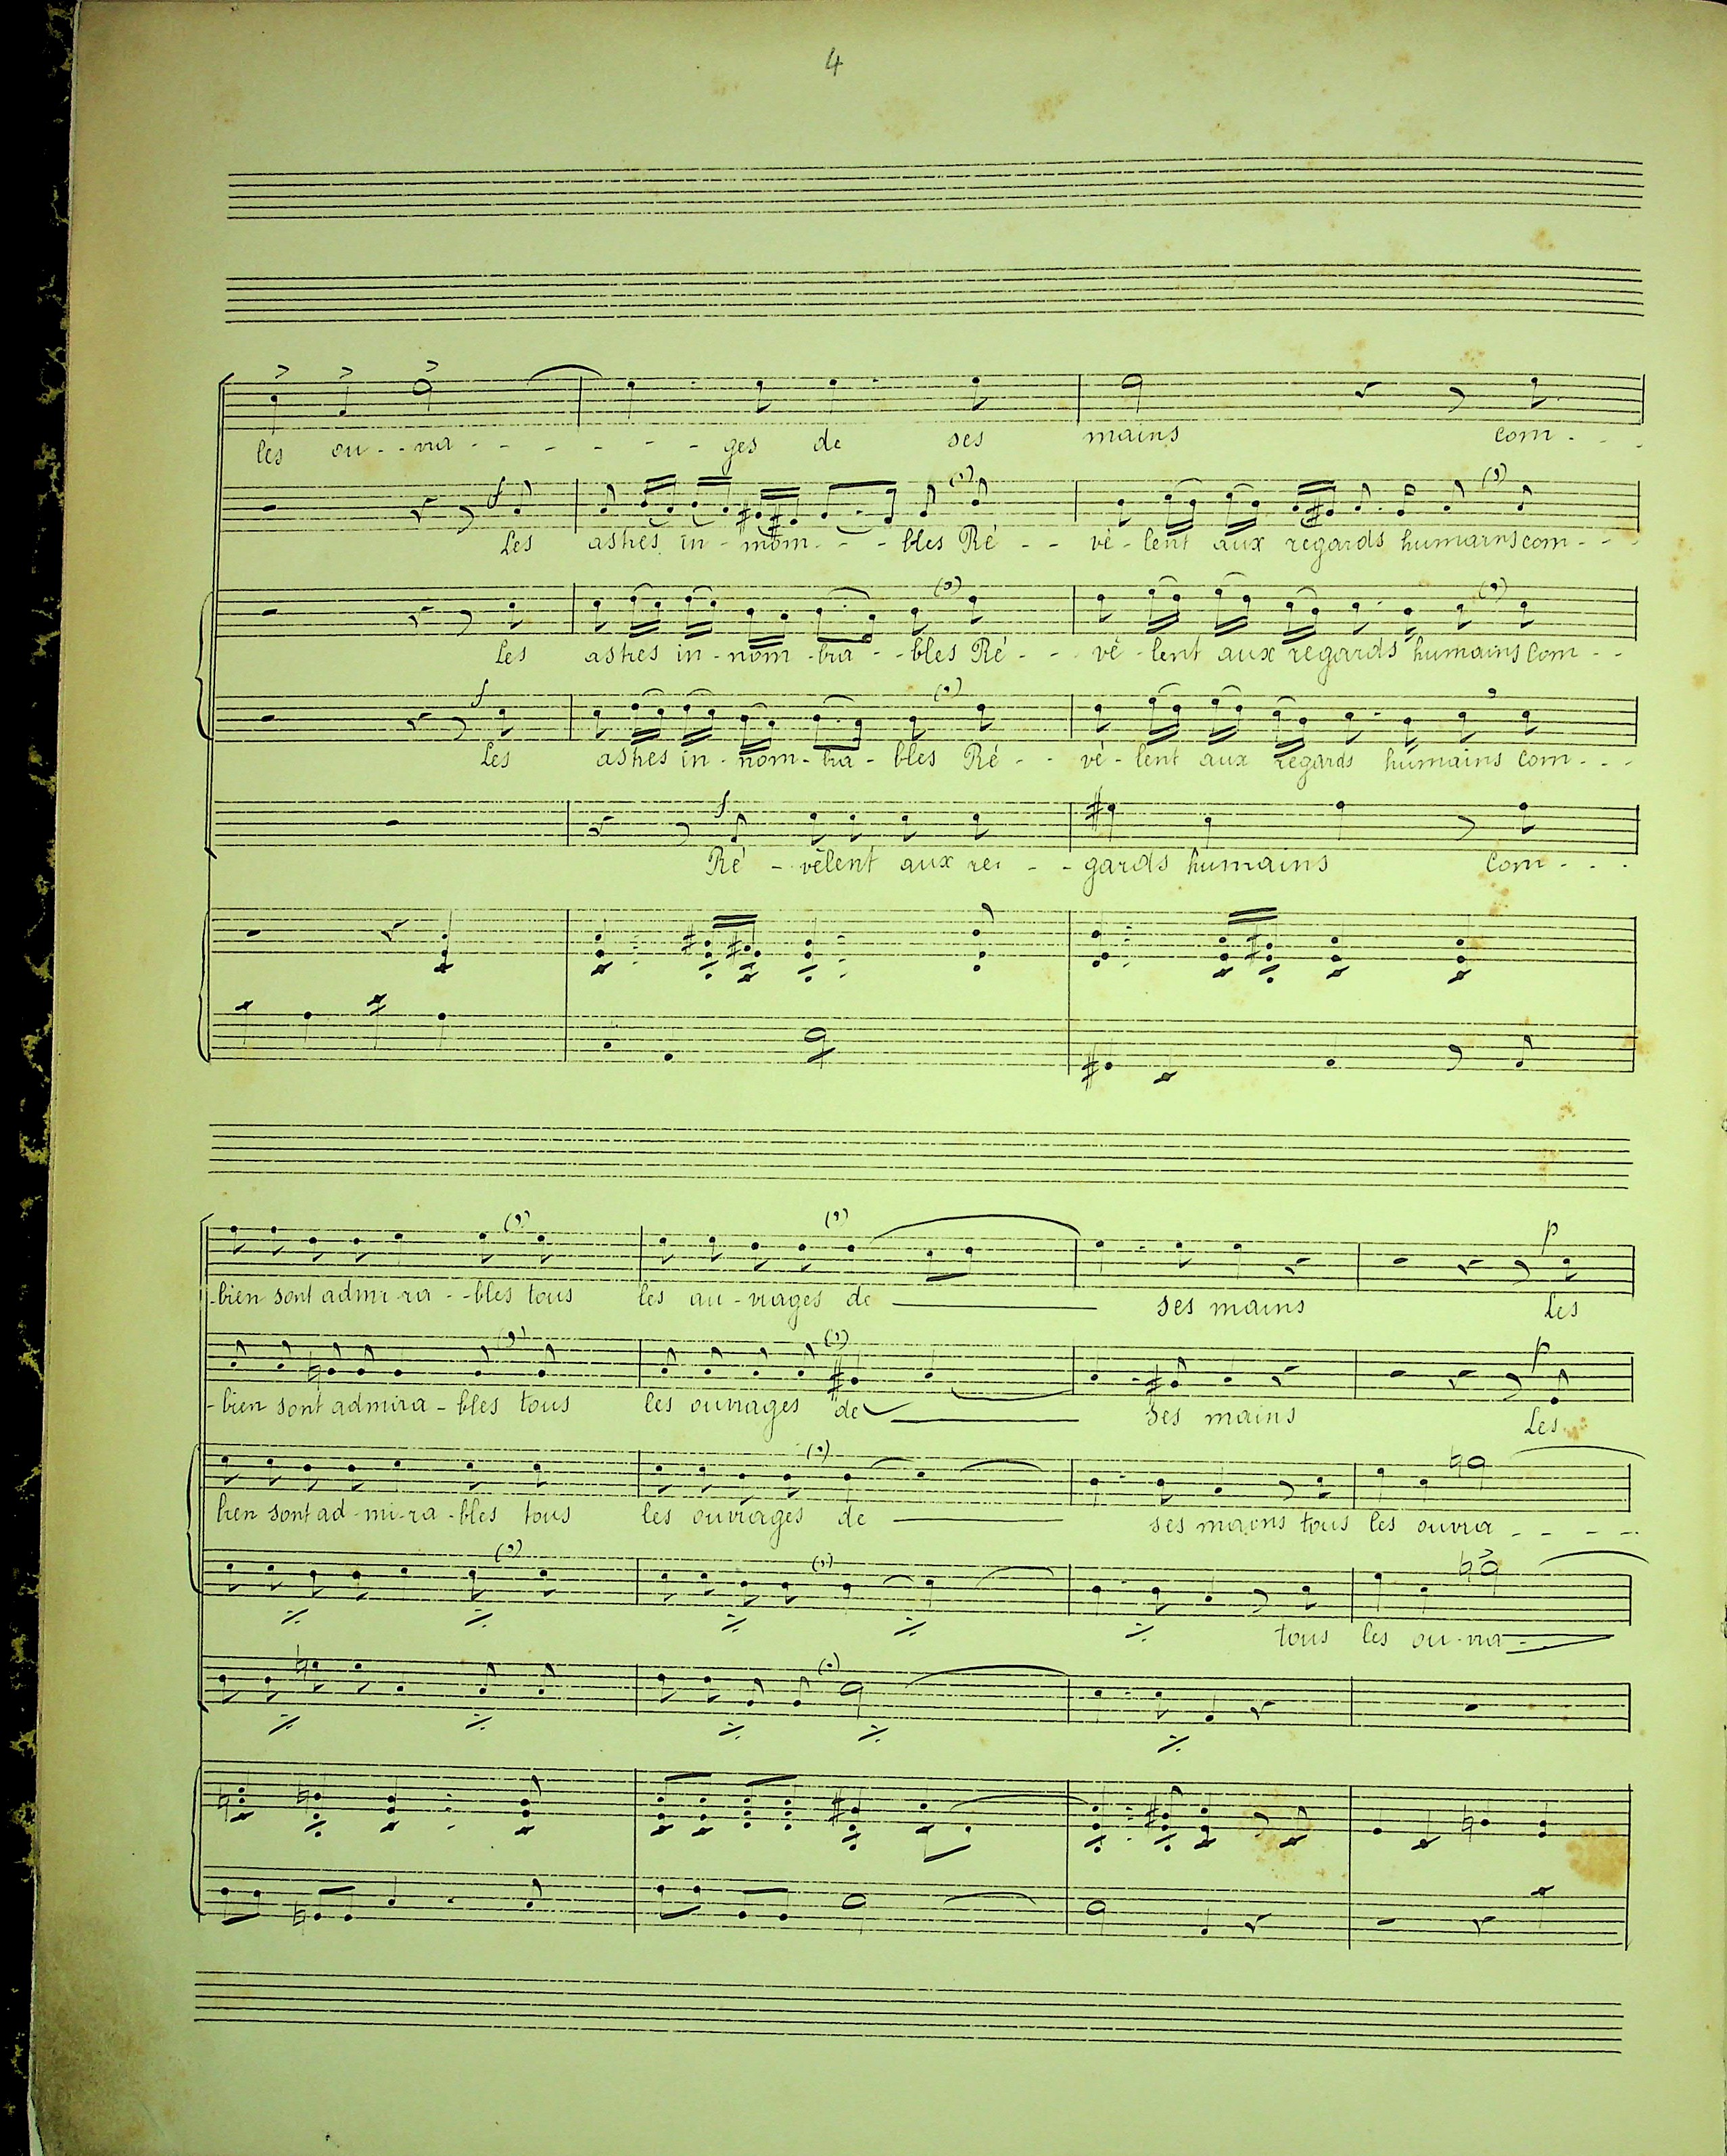 4
les ou - - vra - - - - - - ges de ses mains com - - -
f
Les astres in - nom - - - bles Ré - - vè - lent aux regards humains com - - -
Les astres in - nom - bra - - bles Ré - - vè - lent aux regards humains com - -
f
Les astres in - nom - bra - bles Ré - - vè - lent aux regards humains com - - -
f
Ré - vèlent aux re - - gards humains com - - -
p
- bien sont admi - ra - - bles tous les au - vrages de ses mains Les
p
- bien sont admira - bles tous les ouvrages de ses mains Les
bien sont ad - mi - ra - bles tous les ouvrages de ses mains tous les ouvra - - - -
tous les ou - vra -